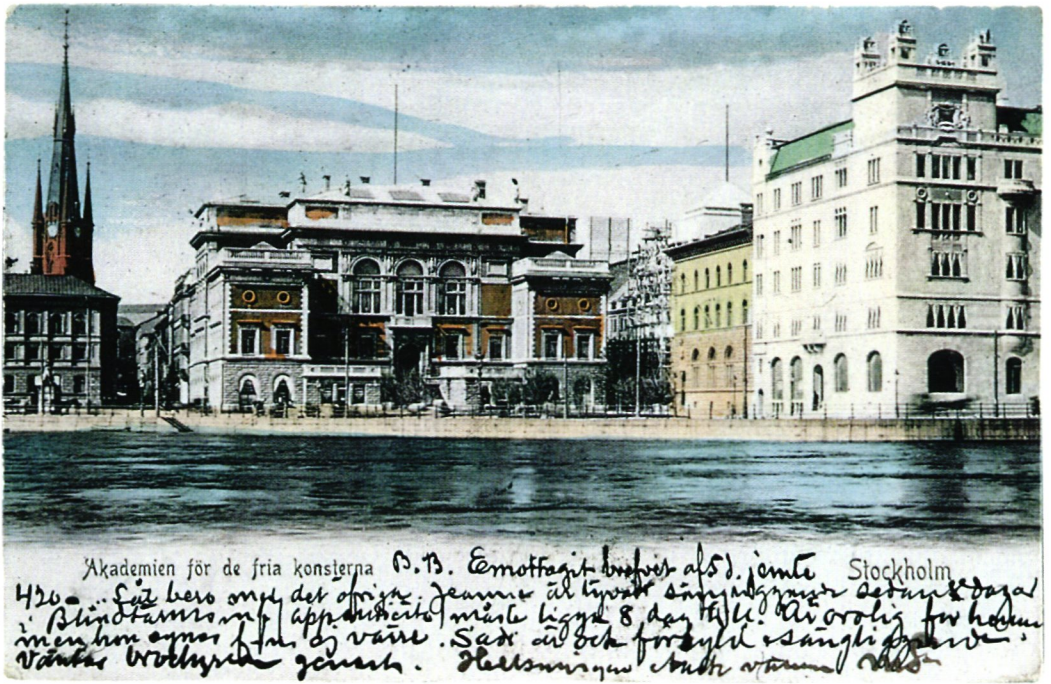 Akademien för de fria konsterna
B.B. Emottagit brefvet af 5 d. jemte
Stockholm
420 - .. Låt bero med det öfriga. Jeanne är tyvärr sängliggande sedan 2 dagar
i Blindtarms inf, appendicite, måste ligga 8 dag till. Är orolig för henne
men hon synes ej värre. är ock förkyld sängliggande.
Väntar brochyren genast. Hellsningar